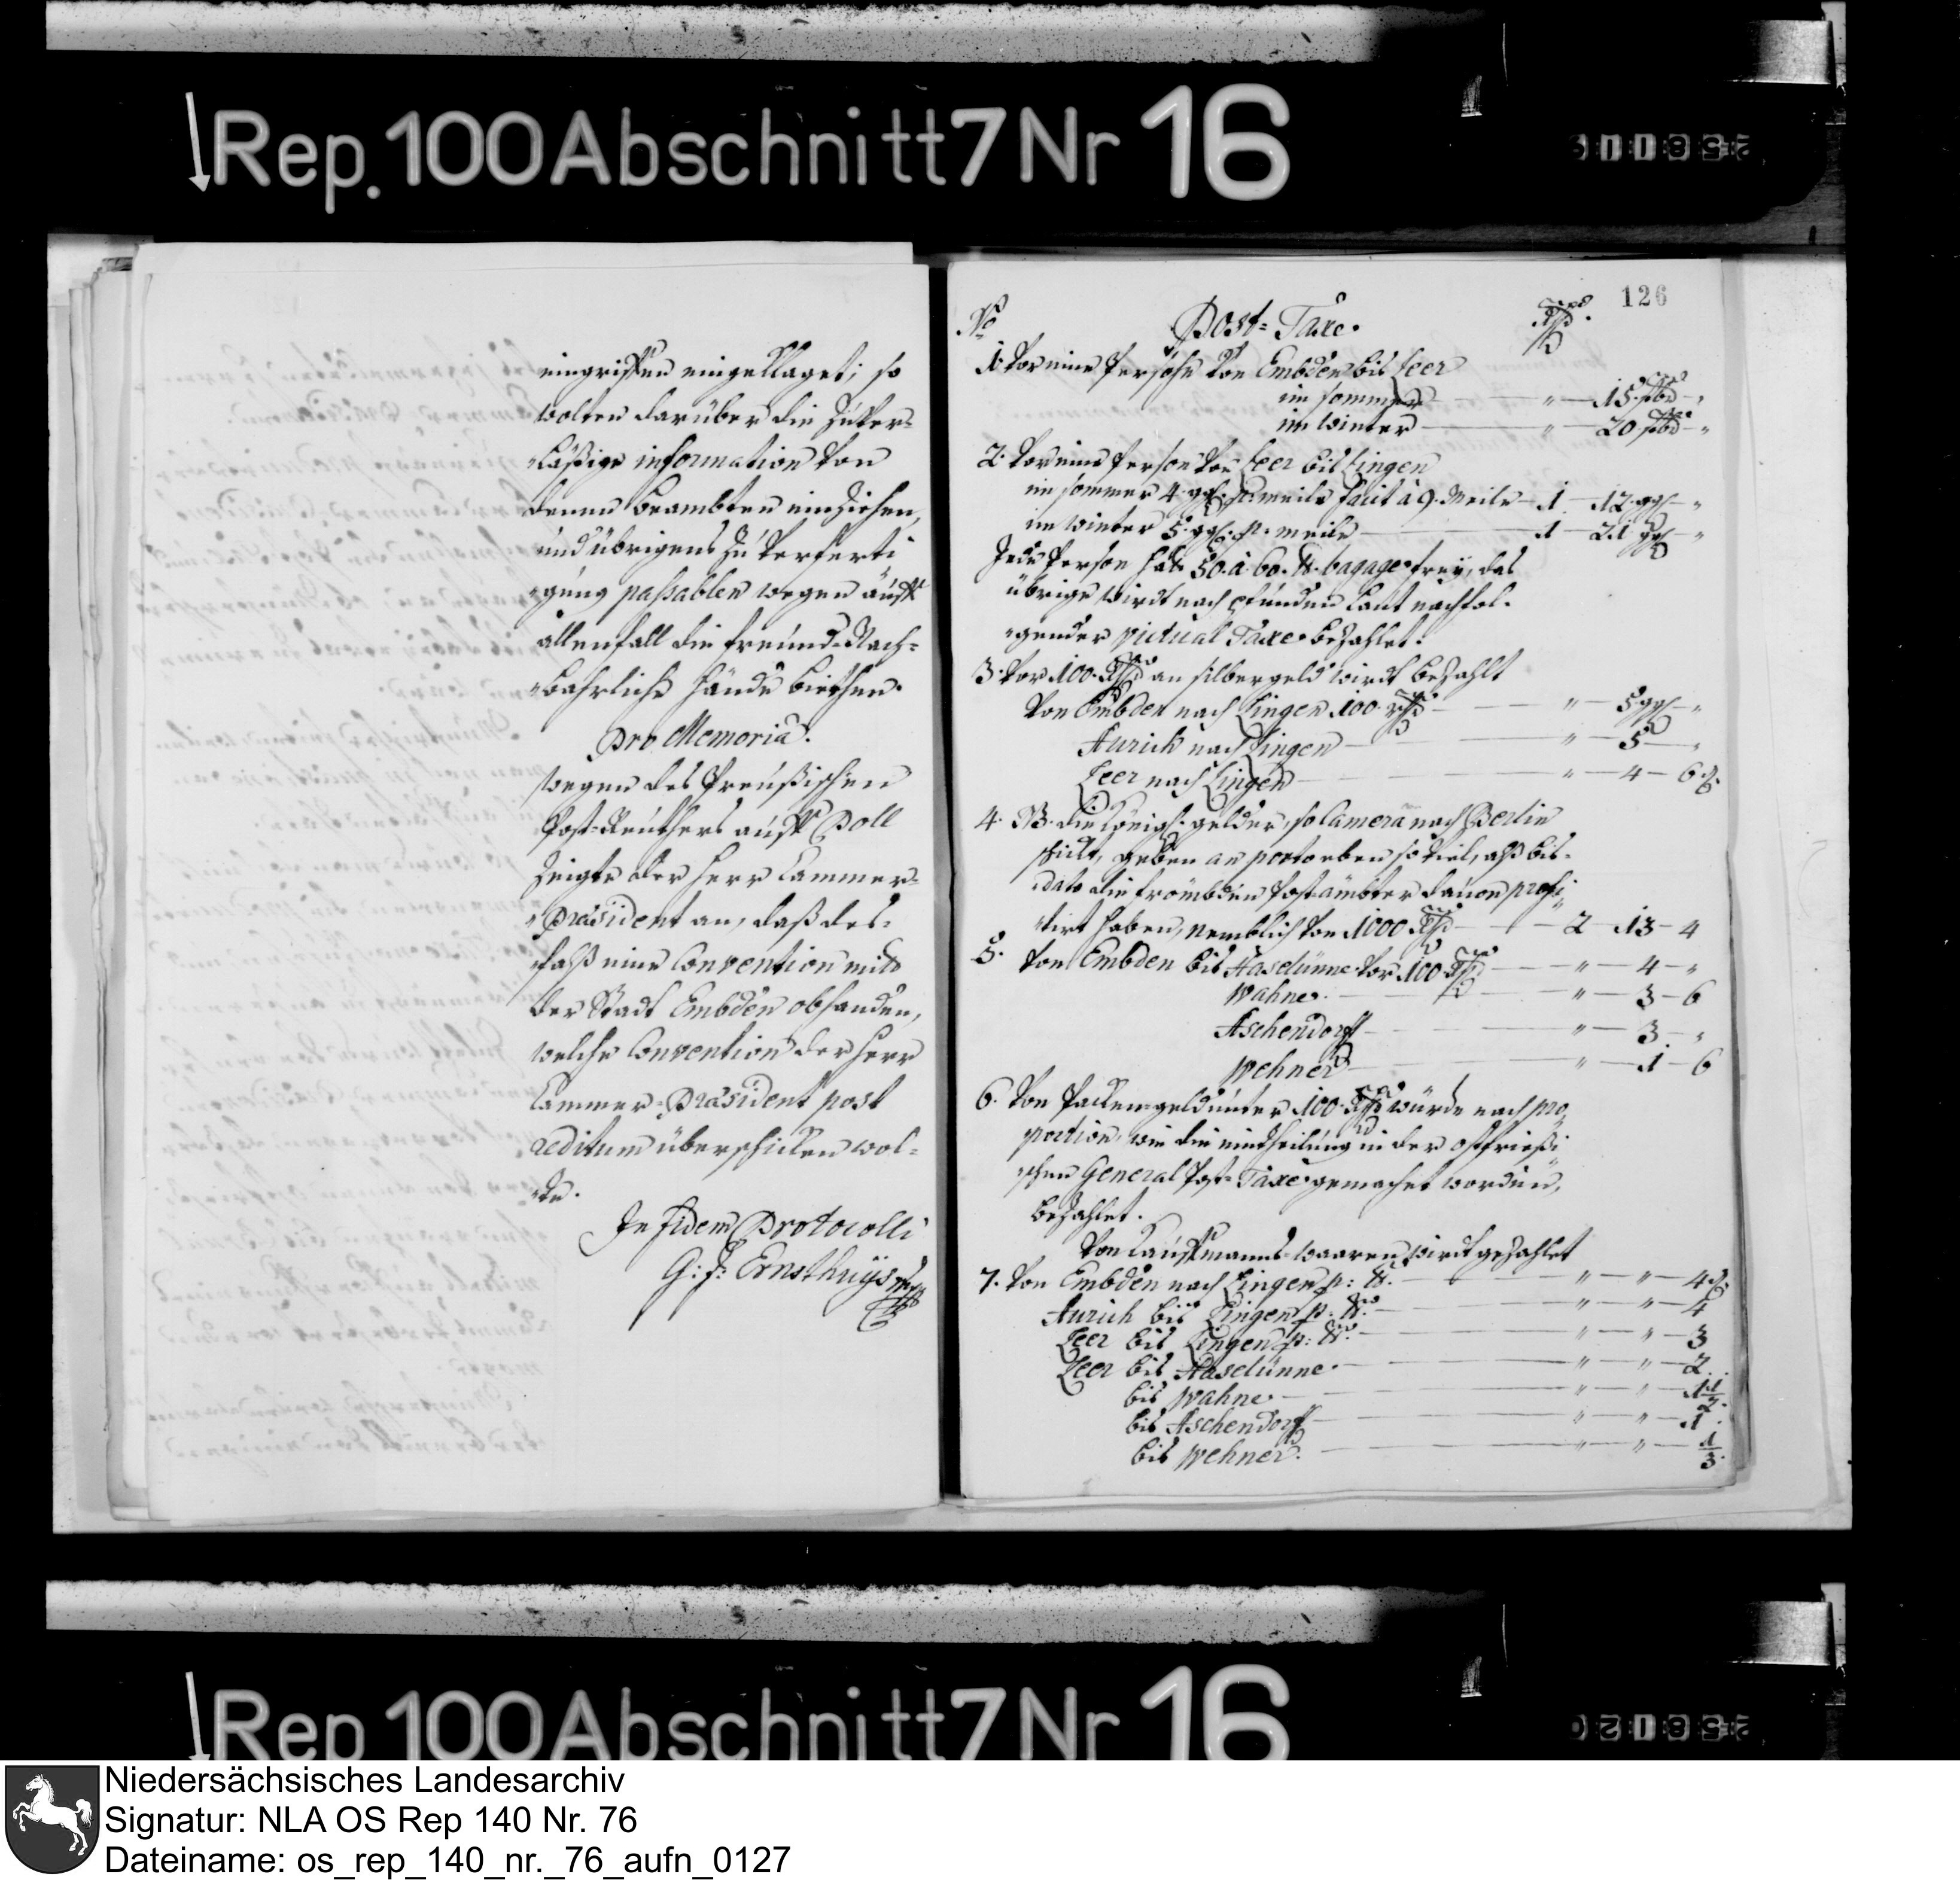 Rep. 100 Abschnitt 7 Nr 16
eingriffen eingeklaget; so
wolten darüber die Zuver¬
"läßige information von
denen Beambten einziehen,
und übrigens zu verferti
"gung passablen wegen auff
allenfall die freund-Nach¬
"bahrliche Hände biethen.
Pro Memoria.
wegen des Preußischen
Post-Reuthers auff Poll
zeigte der Herr Cammer¬
"Præsident an, daß des¬
falß eine Convention mit
der Stadt Embden obhanden,
welche Convention der Herr
Cammer-Præsident post
reditum überschicken wol¬
"te.
In fidem Protocolli
G: J: Ernsthuys
126
No Post-Taxe. Rthlr
1. Vor eine Persohn von Embden bis Leer
im Sommer " 15 stbr "
im Winter " 20 stbr "
2. Vor eine Person von Leer bis Lingen
im Sommer 4 ggl. p. meile facit à 9. Meile 1 12 ggl "
im Winter 5 ggl. p. meile 1 21 ggl "
Jede Person hat 50. à 60. ℔. bagage frey, das
übrige wird nach pfunden laut nachfol¬
"gender victual Taxe bezahlet.
3. Vor 100. Rthlr an silbergeld wird bezahlt
Von Embden nach Lingen 100 Rthlr " 5 ggl "
Aurich nach Lingen " 5 "
Leer nach Lingen " 4 6 d.
4. NB. die Königl. gelder, so Camera nach Berlin
schickt, geben an porto eben so viel, alß bis¬
"dato die frömbden Postämbter davon profi
"tirt haben, nemblich von 1000 Rthlr 2 13 4
5. Von Embden bis Haselünne vor 100 Rthlr " 4 "
Wahne. " 3 6
Aschendorff " 3 "
Wehner " 1 6
6. Von Packengeld unter 100. Rthlr würde nach pro
portion, wie die eintheilung in der ostfrießi
"schen General Post-Taxe gemachet worden,
bezahlet.
Von Kauffmanns-waaren wird gezahlet
7. Von Embden nach Lingen p: ℔. " " 4 d.
Aurich bis Lingen p: ℔. " " 4
Leer bis Lingen p: ℔. " " 3
Leer bis Haselünne " " 2.
bis Wahne " " 1 1/2.
bis Aschendorff " " 1.
bis Wehner. " " 1/3.
Rep 100 Abschnitt 7 Nr 16
Niedersächsisches Landesarchiv
Signatur: NLA OS Rep 140 Nr. 76
Dateiname: os_rep_140_nr._76_aufn_0127